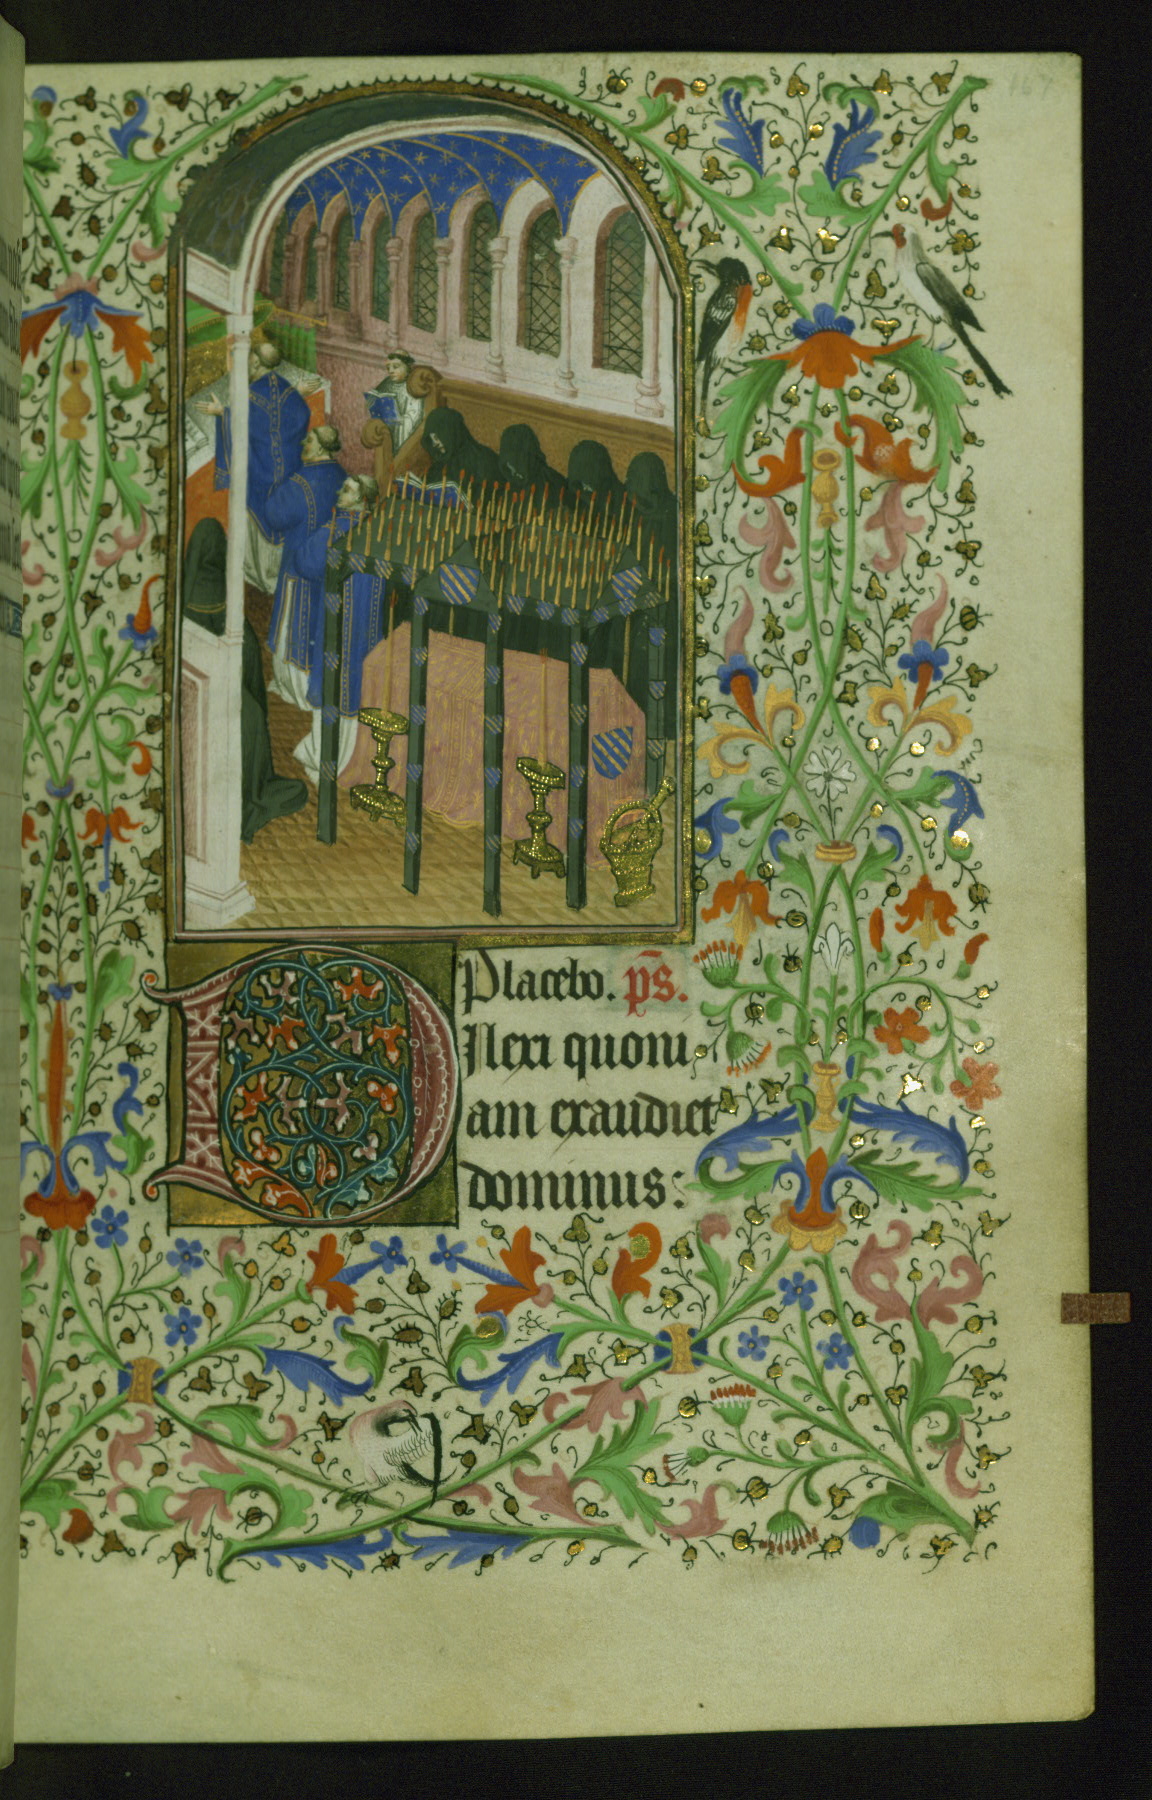 Placebo. p̄s.
Dilexi quoni
am exaudiet
dominus: